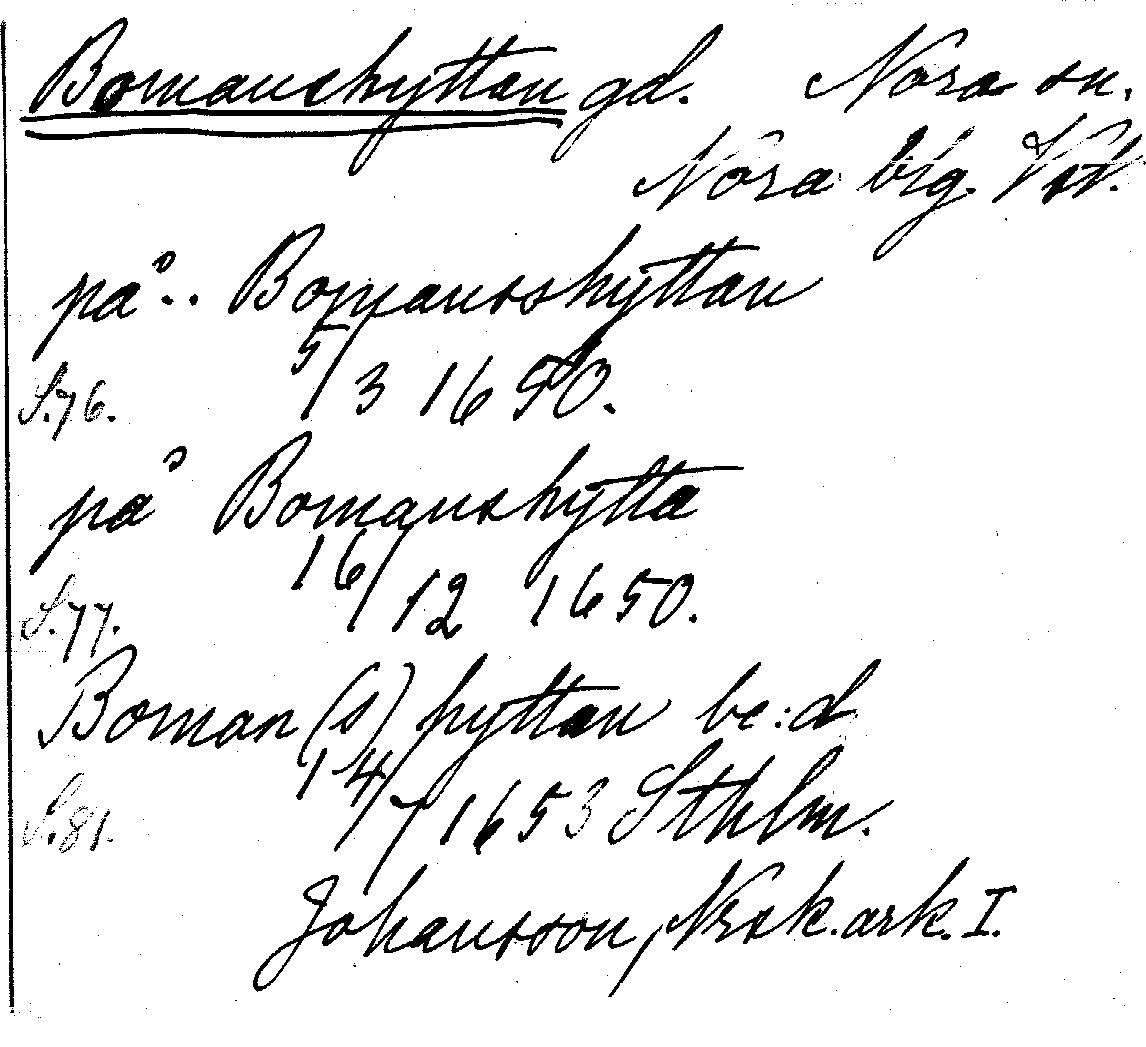 Bomanshyttan gd. Nora sn.
Nora btg. Vstl.
på.. Bomansshyttan
S.76. 5/3 1650.
på Bomanshytta
S.77. 16/12 1650.
Boman(s)hyttan be:d
S.81. 14/7 1653 Sthlm.
Johansson, Nrsk.ark. I.